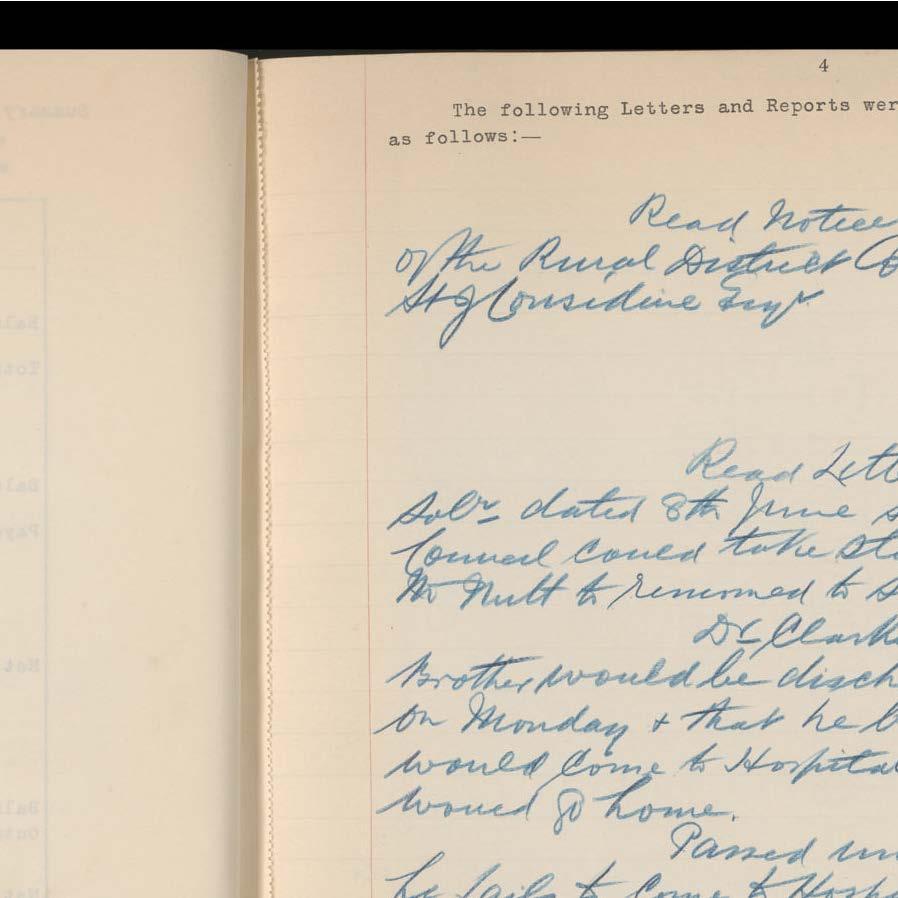 4
The following Letters and Reports wer
as follows:—
Read Notice
of the Rural District Co
St J Considine Esqr
Read Lett
Solr dated 8th June s
Council could take ste
Mc Nutt to removed to S
Dr Clark
Brother would be disch
on Monday + that he b
would come to Hospital
would go home.
Passed un
he fails to come to Hosp